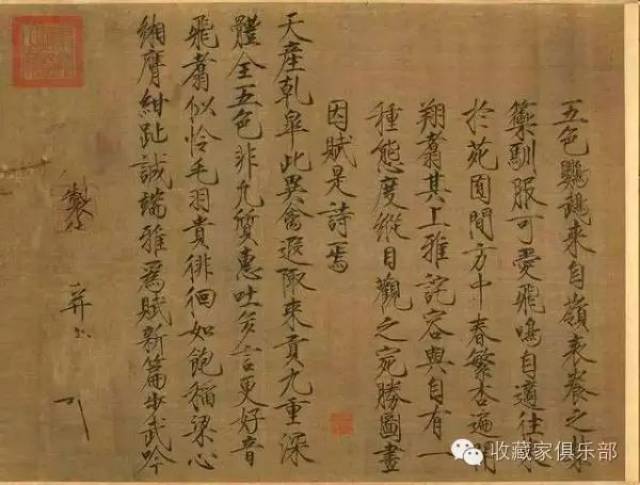 五色鸚鵡來自嶺表養之禁
籞馴服可愛飛鳴自適往來
於苑囿間方中春繁杏遍開
翔翥其上雅詫容與自有一
種態度縱目觀之宛勝圖畫
因賦是詩焉
天產乾皋此異禽遐陬來貢九重深
體全五色非凡質惠吐多言更好音
飛翥似憐毛羽貴徘徊如飽稻粱心
緗膺紺趾誠端雅為賦新篇步武吟
製
并書
收藏家俱乐部